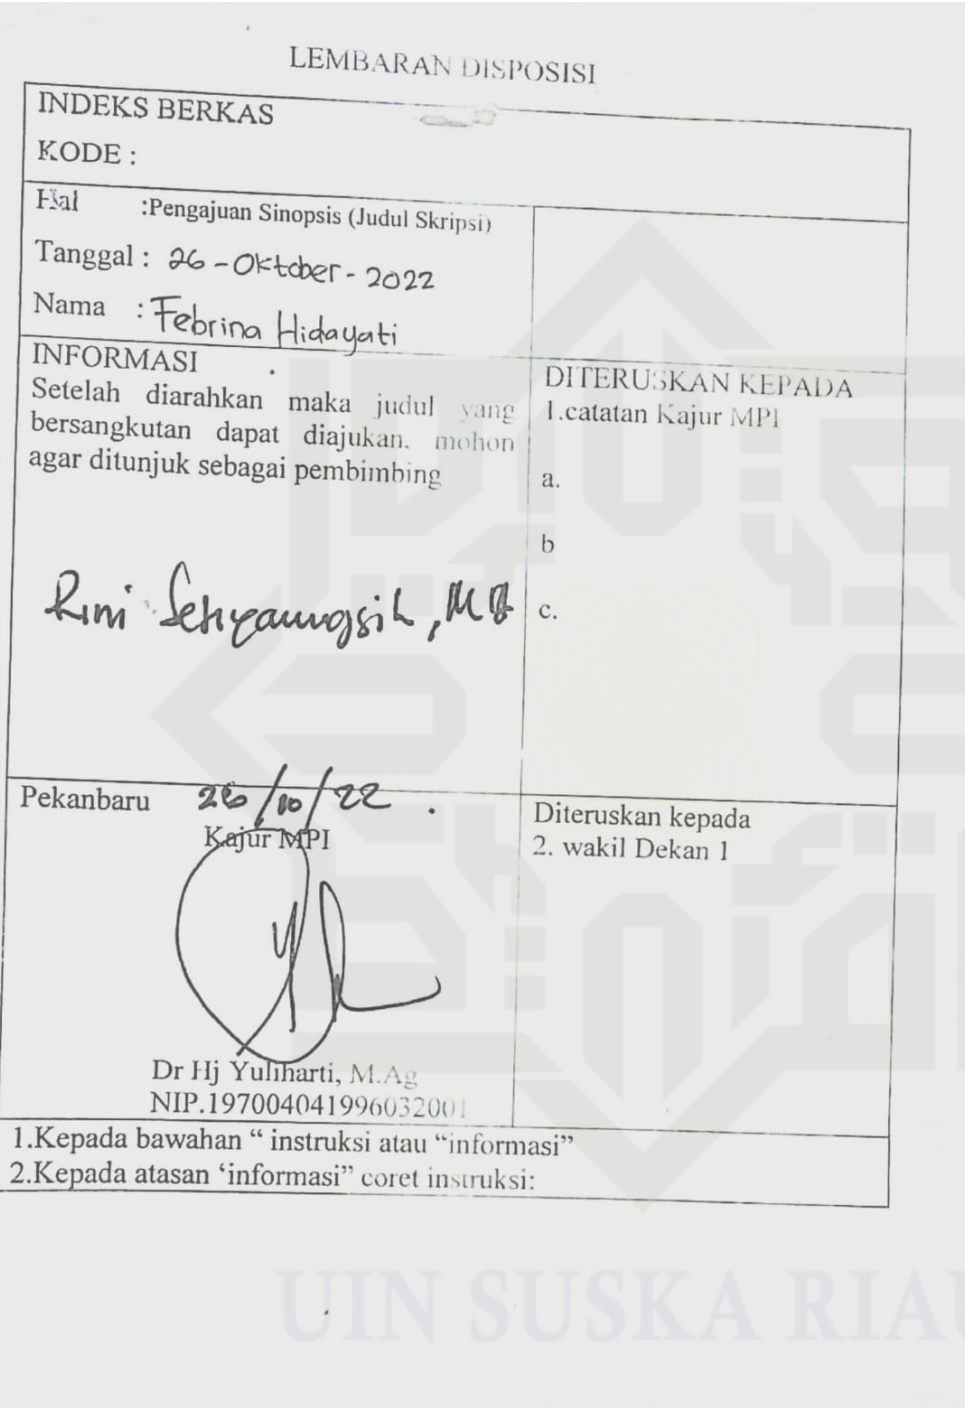 LEMBARAN DISPOSISI
INDEKS BERKAS
KODE :
Hal :Pengajuan Sinopsis (Judul Skripsi)
Tanggal : 26 - Oktober - 2022
Nama : Febrina Hidayati
INFORMASI
Setelah diarahkan maka judul yang
bersangkutan dapat diajukan. mohon
agar ditunjuk sebagai pembimbing
Rini Setiyaningsih, M
DITERUSKAN KEPADA
1.catatan Kajur MPI
a.
b
c.
Pekanbaru 26/10/22 .
Kajur MPI
Dr Hj Yuliharti, M.Ag
NIP.197004041996032001
Diteruskan kepada
2. wakil Dekan 1
1.Kepada bawahan “ instruksi atau “informasi”
2.Kepada atasan ‘informasi” coret instruksi:
UIN SUSKA RIAU